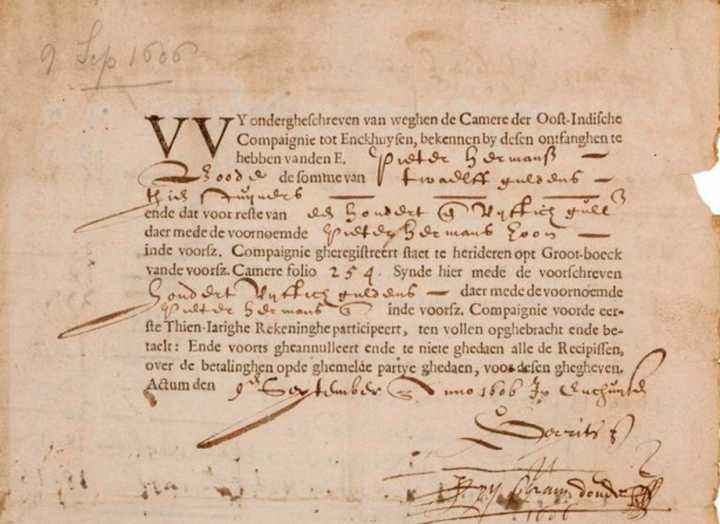 9 Sep 1606
VVY ondergheschreven van weghen de Camere der Oost-Indische
Compaignie tot Enckhuysen, bekennen by desen ontfanghen te
hebben vanden E. Pieter Hermansz
de somme van twaelff guldens
thien stuyvers
ende dat voor reste van een hondert vyftich gull
daer mede de voornoemde Pieter Hermans zoon
inde voorsz. Compaignie gheregistreert staet te herideren opt Groot-boeck
vande voorsz. Camere folio 254. Synde hier mede de voorschreven
hondert vyftich guldens daer mede de voornoemde
Pieter Hermans inde voorsz. Compaignie voorde eer-
ste Thien-Iarighe Rekeninghe participeert, ten vollen opghebracht ende be-
taelt: Ende voorts gheannulleert ende te niete ghedaen alle de Recipissen,
over de betalinghen opde ghemelde partye ghedaen, voor desen ghegheven.
Actum den 9 September Anno 1606 In
1606